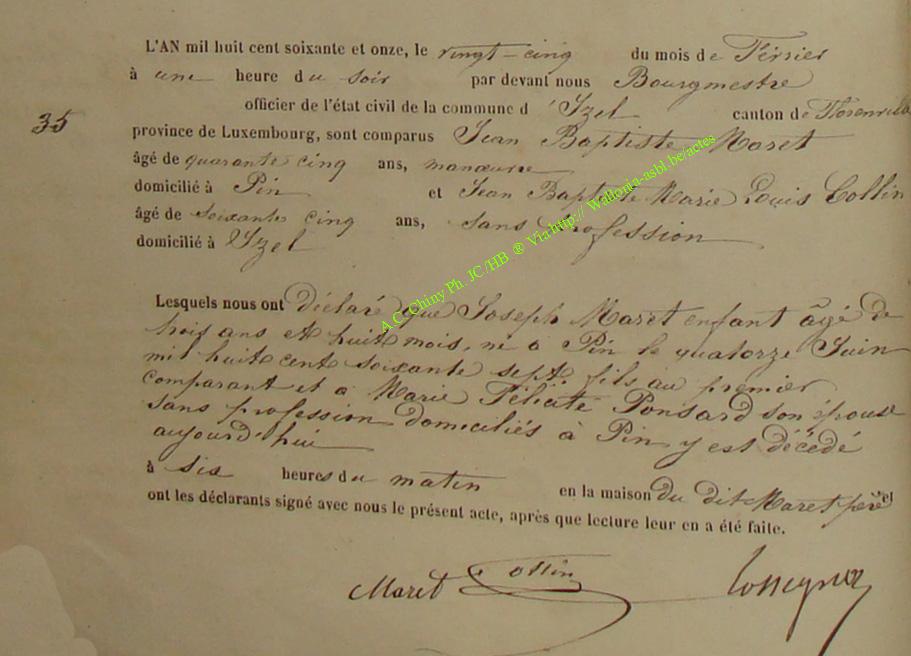 L'AN mil huit cent soixante et onze, le vingt-cinq du mois de Février
à une heure du soir par devant nous Bourgmestre
officier de l'état civil de la commune d'Izel canton de Florenville
35
province de Luxembourg, sont comparus Jean Baptiste Maret
âgé de quarante cinq ans, manœuvre
domicilié à Pin et Jean Baptiste Marie Louis Collin
âgé de soixante cinq ans, sans profession
domicilié à Izel
A.C. Chiny Ph. JC/HB ® Via http:// Wallonia-asbl.be/actes
Lesquels nous ont déclaré que Joseph Maret enfant âgé de
trois ans et huit mois, né à Pin le quatorze Juin
mil huit cent soixante sept fils au premier
comparant et a Marie Félicité Ponsard son épouse
sans profession domiciliés à Pin y est décédé
aujourd'hui
à six heures du matin en la maison du dit Maret père et
ont les déclarants signé avec nous le présent acte, après que lecture leur en a été faite.
Maret Collin